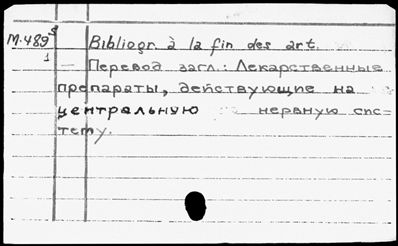 M.489 s Bibliogr. à la fin des art.
1
— Перевод загл.: Лекарственные
препараты, действующие на
центральную нервную сис=
тему.